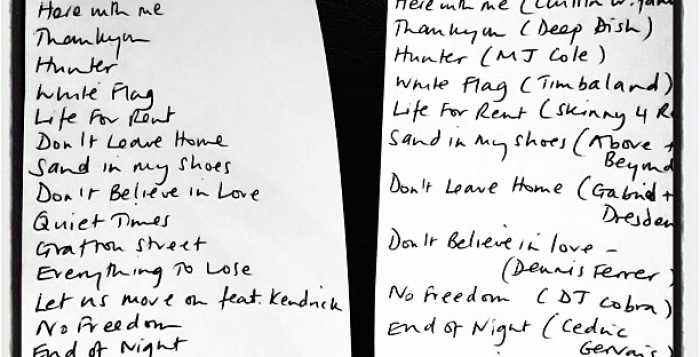 Here with me
Thankyou
Hunter
White Flag
Life For Rent
Don't Leave Home
Sand in my Shoes
Don't Believe in Love
Quiet Times
Grafton Street
Everything To Lose
Let us move on feat. Kendrick
No Freedom
End of Night
Here with me (
Thankyou (Deep Dish)
Hunter (MJ Cole)
White Flag (Timbaland)
Life For Rent (Skinny 4 R
Sand in my shoes (Above +
Beyond
Don't Leave Home (Gabriel +
Dresden
Don't Believe in love -
(Dennis Ferrer)
No Freedom (DJ Cobra)
End of Night (Cedric
Gervais)